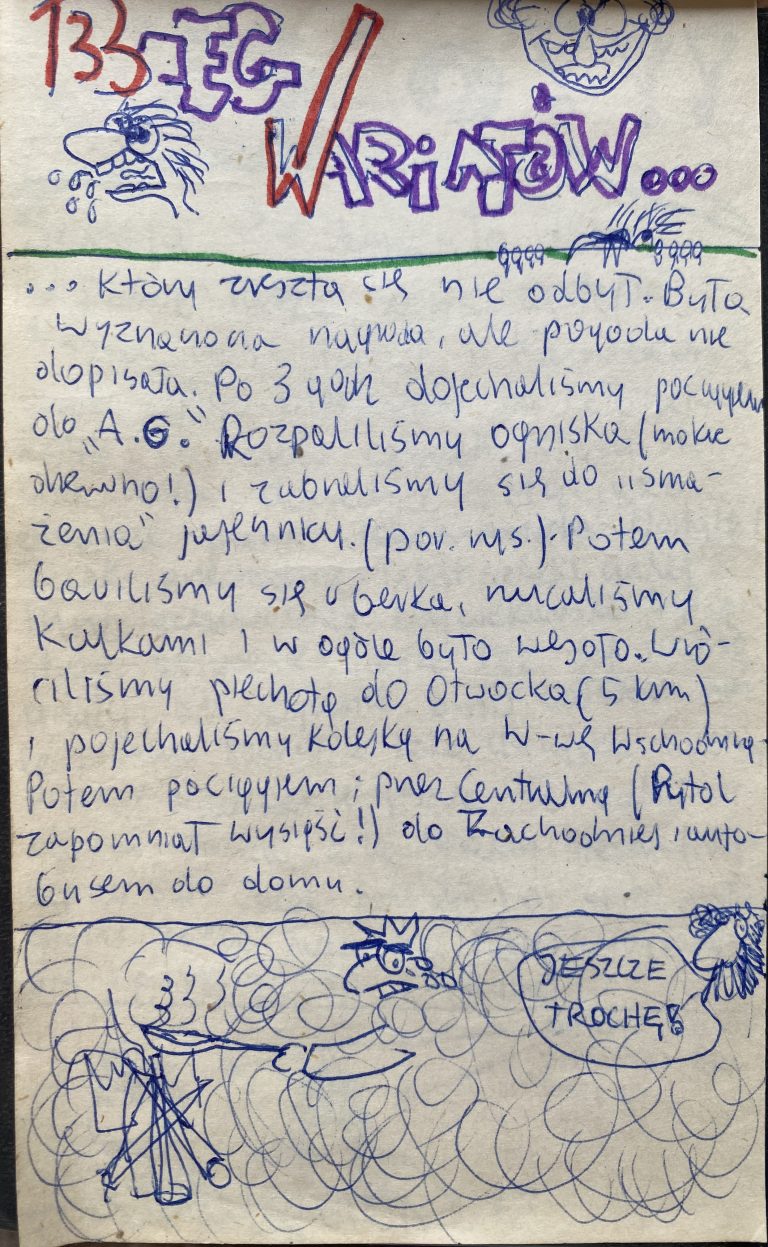 133-EG
WARIATÓW...
... który zresztą się nie odbył. Była
wyznaczona nagroda, ale pogoda nie
dopisała. Po 3 godz dojechaliśmy pociągiem
do „A.G." Rozpaliliśmy ogniska (mokre
drewno!) i zabraliśmy się do „sma-
żenia" jajecznicy. (por. rys.). Potem
bawiliśmy się w berka, rzucaliśmy
kulkami i w ogóle było wesoło. Wró-
ciliśmy piechotą do Otwocka (5 km)
i pojechaliśmy kolejką na W-wę Wschodnią.
Potem pociągiem; przez Centralną (
zapomniał wysiąść!) do Zachodniej i auto-
busem do domu.
JESZCZE
TROCHĘ!